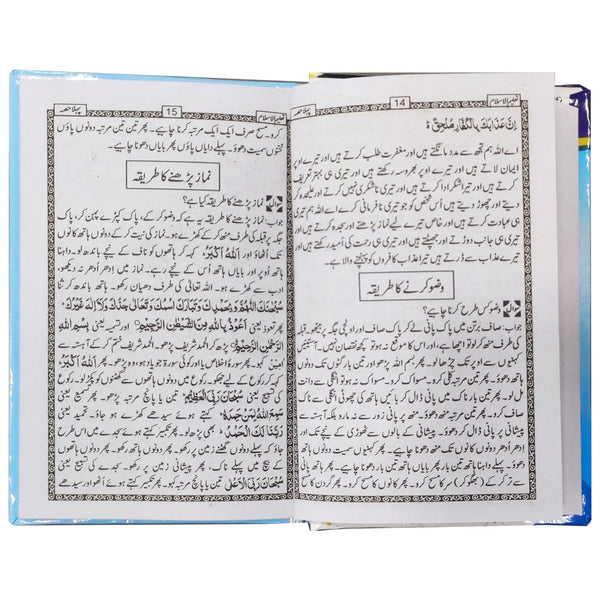 تعلیم الاسلام 14 پہلا حصہ
اِنَّ عَذَابَكَ بِالْكُفَّارِ مُلْحِقٌ ؕ
اے اللہ ہم تجھ سے مدد مانگتے ہیں اور مغفرت طلب کرتے ہیں اور تیرے اوپر
ایمان لاتے ہیں اور تیرے اوپر بھروسہ رکھتے ہیں اور تیری بہتر تعریف
کرتے ہیں اور تیرا شکر ادا کرتے ہیں اور تیری ناشکری نہیں کرتے اور علیحدہ کر
دیتے اور چھوڑ دیتے ہیں اُس شخص کو جو تیری نافرمانی کرے اے اللہ ہم تیری
ہی عبادت کرتے ہیں اور خاص تیرے لیے نماز پڑھتے اور سجدہ کرتے ہیں اور
تیری ہی جانب دوڑتے اور جھپٹتے ہیں اور تیری ہی رحمت کی اُمید رکھتے ہیں اور
تیرے عذاب سے ڈرتے ہیں تیرا عذاب کافروں کو پہنچنے والا ہے۔
وضو کرنے کا طریقہ
سوال وضو کس طرح کرنا چاہیے؟
جواب: صاف برتن میں پاک پانی لے کر پاک صاف اور اونچی جگہ پر بیٹھو۔ قبلہ
کی طرف منھ کرلو تو اچھا ہے اور اس کا موقع نہ ہو تو کچھ نقصان نہیں۔ آستینیں
کہنیوں سے اوپر تک چڑھا لو۔ پھر بسم اللہ پڑھو اور تین بار گٹوں تک دونوں
ہاتھ دھوؤ۔ پھر تین مرتبہ کلی کرو۔ مسواک کرو۔ مسواک نہ ہو تو انگلی سے دانت
مل لو۔ پھر تین بار ناک میں پانی ڈال کر بائیں ہاتھ کی چھوٹی انگلی سے ناک
صاف کرو۔ پھر تین مرتبہ منھ دھوؤ۔ منھ پر پانی زور سے نہ مارو بلکہ آہستہ سے
پیشانی پر پانی ڈال کر دھوؤ۔ پیشانی کے بالوں سے ٹھوڑی کے نیچے تک اور
اِدھر اُدھر دونوں کانوں تک منھ دھونا چاہیے۔ پھر کہنیوں سمیت دونوں ہاتھ
دھوؤ۔ پہلے داہنا ہاتھ تین بار پھر بایاں ہاتھ تین بار دھونا چاہیے۔ پھر ہاتھ پانی
سے تر کر کے (بھگو کر) سر کا مسح کرو۔ پھر کانوں کا مسح کرو۔ پھر گردن کا مسح
تعلیم الاسلام 15 پہلا حصہ
کرو۔ مسح صرف ایک ایک مرتبہ کرنا چاہیے۔ پھر تین تین مرتبہ دونوں پاؤں
ٹخنوں سمیت دھوؤ۔ پہلے دایاں پاؤں پھر بایاں دھونا چاہیے۔
نماز پڑھنے کا طریقہ
سوال نماز پڑھنے کا طریقہ کیا ہے؟
جواب: نماز پڑھنے کا طریقہ یہ ہے کہ وضو کر کے، پاک کپڑے پہن کر، پاک
جگہ پر قبلہ کی طرف منھ کر کے کھڑے ہو۔ نماز کی نیت کر کے دونوں ہاتھ کانوں
تک اُٹھاؤ اور اَللّٰهُ اَكْبَرُ کہہ کر ہاتھوں کو ناف کے نیچے باندھ لو۔ داہنا
ہاتھ اُوپر اور بایاں ہاتھ اُس کے نیچے رہے۔ نماز میں اِدھر اُدھر نہ دیکھو۔
ادب سے کھڑے رہو۔ خدا تعالیٰ کی طرف دھیان رکھو۔ ہاتھ باندھ کر ثنا
سُبْحٰنَكَ اللّٰهُمَّ وَبِحَمْدِكَ وَتَبَارَكَ اسْمُكَ وَتَعَالٰى جَدُّكَ وَلَا اِلٰهَ غَيْرُكَ
پھر تعوذ یعنی اَعُوْذُ بِاللّٰهِ مِنَ الشَّيْطٰنِ الرَّجِيْمِ اور تسمیہ یعنی بِسْمِ اللّٰهِ
الرَّحْمٰنِ الرَّحِيْمِ پڑھ کر الحمد شریف پڑھو۔ الحمد شریف ختم کر کے آہستہ سے آمین
کہو۔ پھر سورۃ اخلاص یا اور کوئی سورۃ جو یاد ہو، وہ پڑھو۔ پھر اَللّٰهُ اَكْبَرُ
کہہ کر رکوع کے لیے جھکو۔ رکوع میں دونوں ہاتھوں سے گھٹنوں کو پکڑ لو اور رکوع
کی تسبیح یعنی سُبْحَانَ رَبِّيَ الْعَظِيْمِ تین یا پانچ مرتبہ پڑھو۔ پھر تسمیع یعنی
سَمِعَ اللّٰهُ لِمَنْ حَمِدَهٗ کہتے ہوئے سیدھے کھڑے ہو جاؤ۔ تحمید یعنی
رَبَّنَا لَكَ الْحَمْدُ بھی پڑھ لو۔ پھر تکبیر کہتے ہوئے سجدے میں اس طرح
جاؤ کہ پہلے دونوں گھٹنے زمین پر رکھو۔ پھر دونوں ہاتھ رکھو۔ پھر دونوں ہاتھوں
کے بیچ میں پہلے ناک۔ پھر پیشانی زمین پر رکھو۔ سجدے کی تسبیح یعنی
سُبْحَانَ رَبِّيَ الْاَعْلٰى تین یا پانچ مرتبہ کہو۔ پھر تکبیر کہتے ہوئے اٹھو اور سیدھے